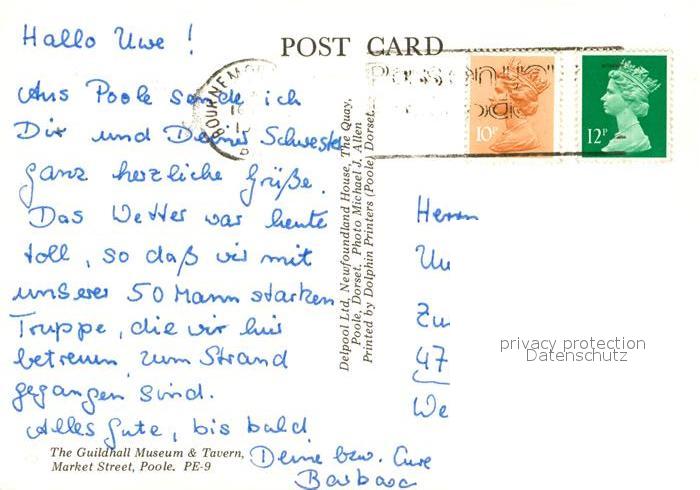 Hallo Uwe !
POST CARD
Aus Poole sende ich
Dir und Deiner Schwester
ganz herzliche Grüße.
Das Wetter war heute
toll, so daß wir mit
unserer 50 Mann starken
Truppe, die wir hier
betreuen, zum Strand
gegangen sind.
Alles Gute, bis bald
Deine bzw. Eure
Barbara
The Guildhall Museum & Tavern,
Market Street, Poole. PE-9
Delpool Ltd, Newfoundland House, The Quay,
Poole, Dorset. Photo Michael J. Allen
Printed by Dolphin Printers (Poole) Dorset.
BOURNEMO
10P
12P
Herrn
Zu
47
We
privacy protection
Datenschutz